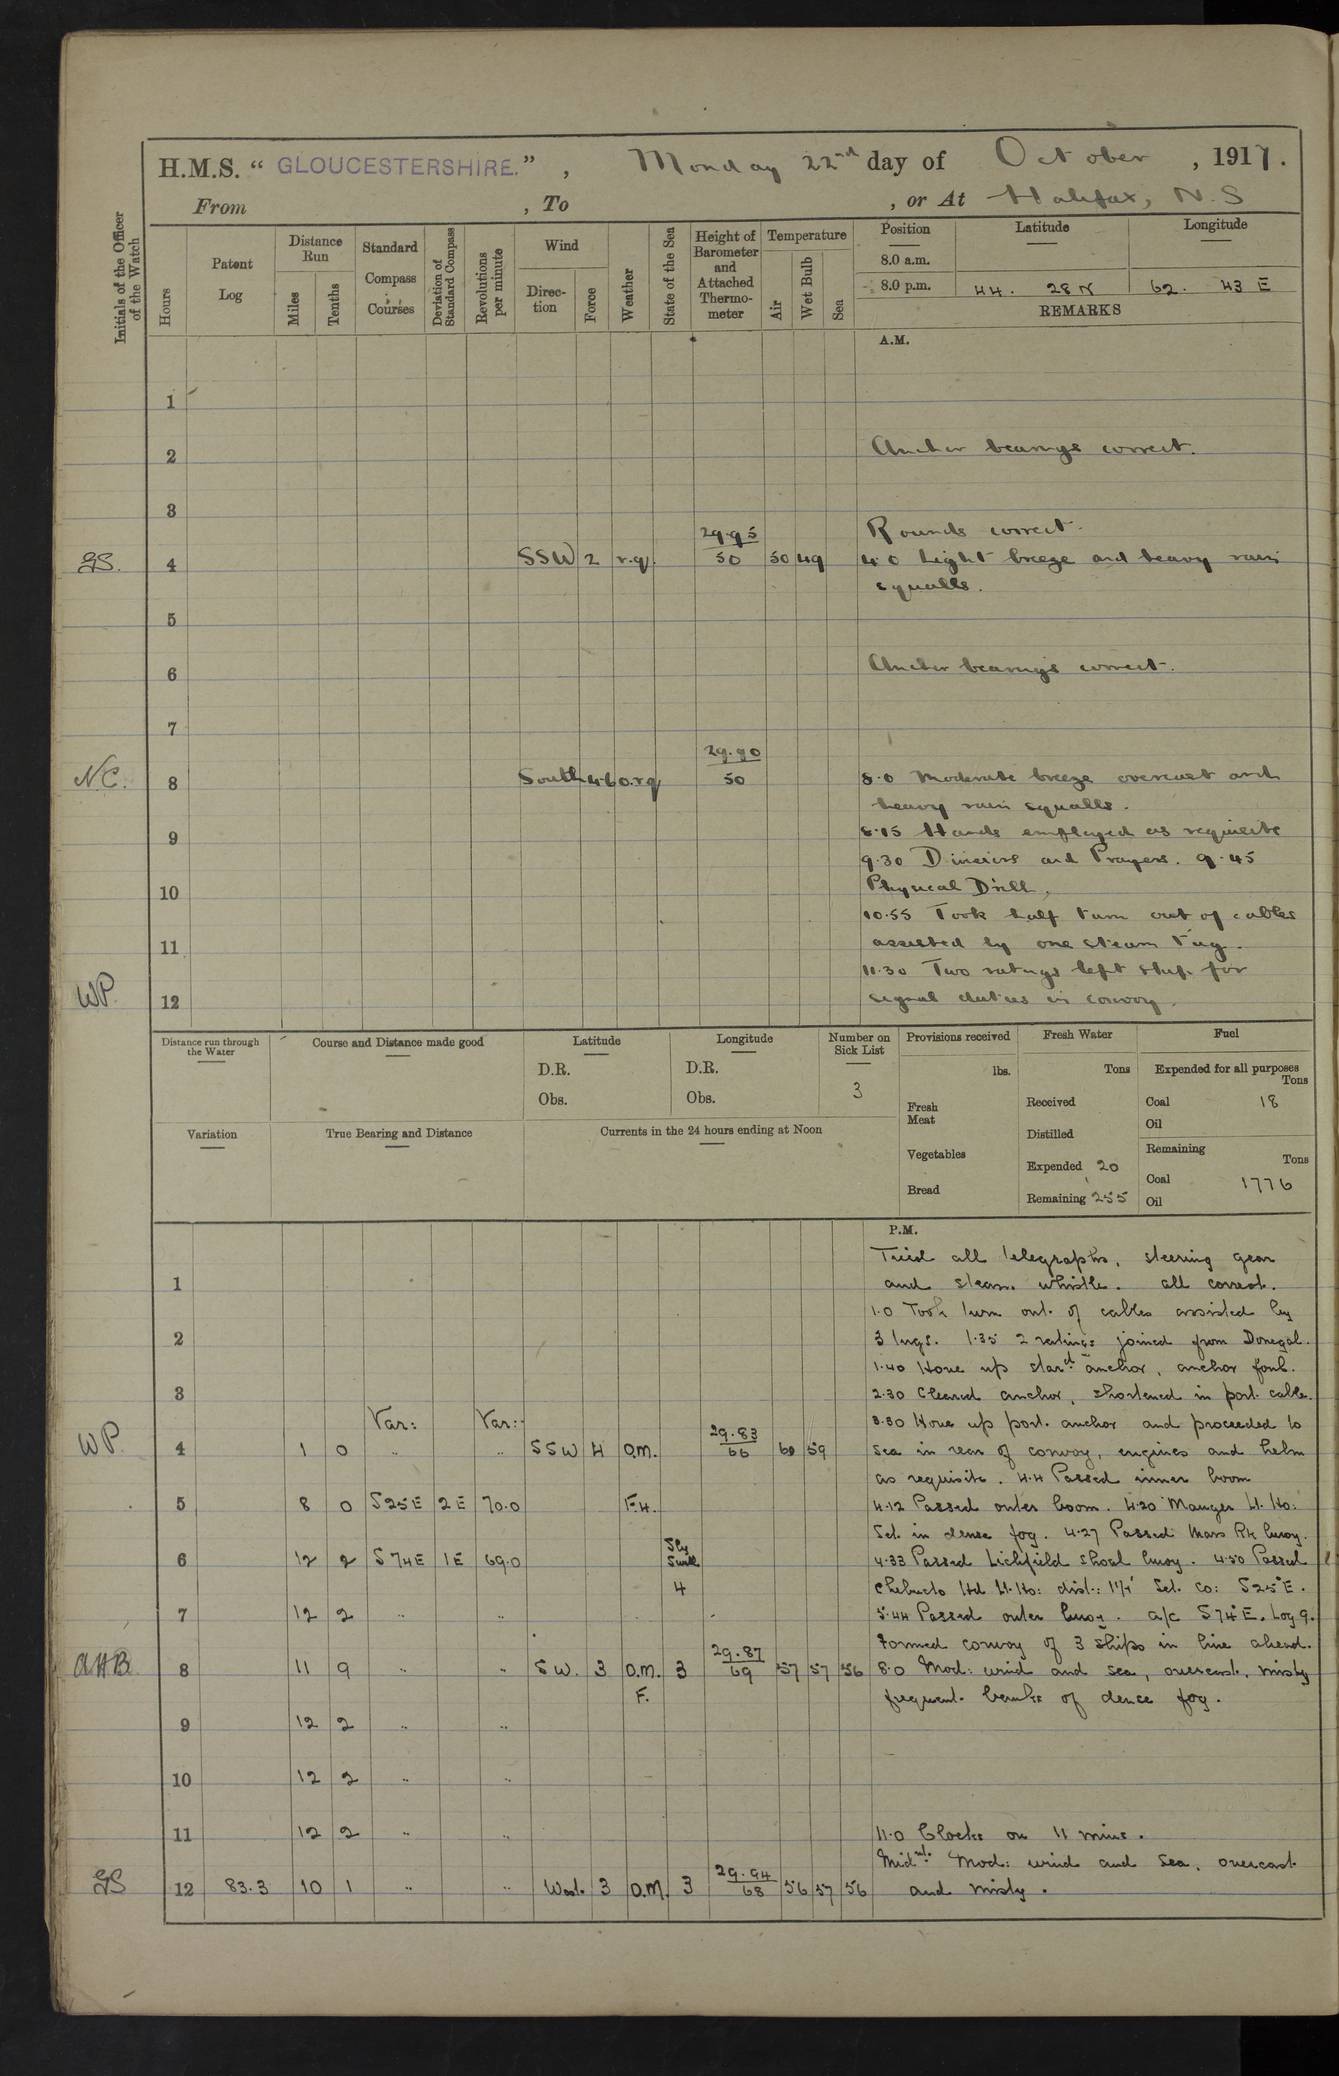 H.M.S. “ GLOUCESTERSHIRE. ” , Monday 22nd day of October , 1917.
From , To , or At Halifax, N.S
Initials of the Officer of the Watch
Hours
Patent Log
Distance Run
Miles
Tenths
Standard Compass Courses
Deviation of Standard Compass
Revolutions per minute
Wind
Direc-tion
Force
Weather
State of the Sea
Height of Barometer and Attached Thermo-meter
Temperature
Air
Wet Bulb
Sea
Position Latitude Longitude
8.0 a.m.
8.0 p.m. 44. 28 N 62. 43 E
REMARKS
A.M.
1
2 Anchor bearings correct.
3
Rounds correct.
GS. 4 SSW 2 r.q. 29.95 50 50 49 4.0 Light breeze and heavy rain
squalls.
5
6 Anchor bearings correct.
7
NC. 8 South 4.6 o.r.q 29.90 50 8.0 Moderate breeze overcast and
heavy rain squalls.
9 8.15 Hands employed as requisite
9.30 Divisions and Prayers. 9.45
10 Physical Drill.
10.55 Took half turn out of cables
11 assisted by one steam tug.
11.30 Two ratings left ship for
WP. 12 signal duties in convoy.
Distance run through the Water
Course and Distance made good
Latitude
D.R.
Obs.
Longitude
D.R.
Obs.
Number on Sick List
3
Variation
True Bearing and Distance
Currents in the 24 hours ending at Noon
Provisions received
lbs.
Fresh Meat
Vegetables
Bread
Fresh Water
Tons
Received
Distilled
Expended 20
Remaining 255
Fuel
Expended for all purposes
Tons
Coal 18
Oil
Remaining
Tons
Coal 1776
Oil
P.M.
Tried all telegraphs, steering gear
1 and steam whistle. all correct.
1.0 Took turn out of cables assisted by
2 3 tugs. 1.35 2 ratings joined from Donegal.
1.40 Hove up stard anchor, anchor foul.
3 2.30 Cleared anchor, shortened in port cable.
Var: Var: 3.30 Hove up port anchor and proceeded to
WP. 4 1 0 " " SSW 4 O.M. 29.83 66 60 59 sea in rear of convoy, engines and helm
as requisite. 4.4 Passed inner boom
5 8 0 S25E 2E 70.0 F.4. 4.12 Passed outer boom. 4.20 Mauger Lt. Ho:
Set in dense fog. 4.27 Passed Mars Rk buoy.
6 12 2 S74E 1E 69.0 Sly Swell 4 4.33 Passed Lichfield shoal buoy. 4.50 Passed
Chebucto Hd Lt. Ho: dist: 1¼' Set. Co: S25°E.
7 12 2 " " 5.44 Passed outer buoy. a/c S74°E. Log 9.
Formed convoy of 3 ships in line ahead.
AHB 8 11 9 " " SW. 3 O.M. F. 3 29.87 69 57 57 56 8.0 Mod: wind and sea, overcast, misty
frequent banks of dence fog.
9 12 2 " "
10 12 2 " "
11 12 2 " " 11.0 Clocks on 11 mins.
Midnt. Mod: wind and sea, overcast
GS 12 83.3 10 1 " " West. 3 O.M. 3 29.94 68 56 57 56 and misty.